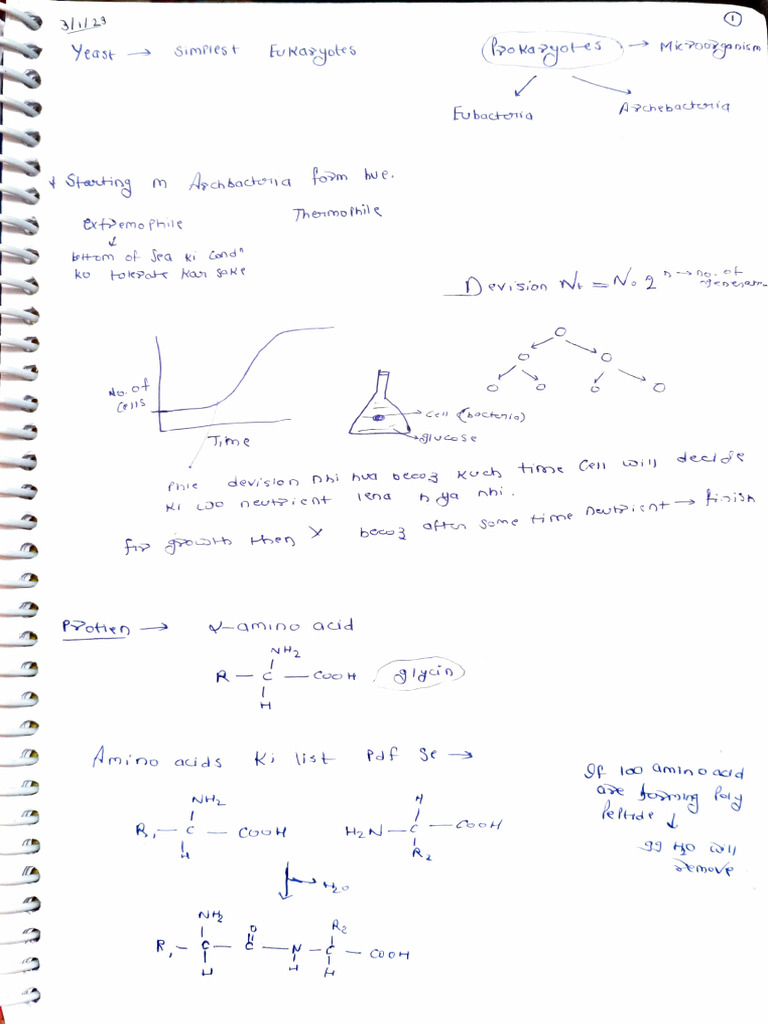 3/1/23
1
Yeast → Simplest Eukaryotes
Prokaryotes → Microorganism
Eubacteria
Archebacteria
* Starting m Archbacteria form hue.
Extremophile
Thermophile
bottom of Sea ki condⁿ
ko tolerate kar sake
Devision Nt = No 2ⁿ → no. of
generatn
No. of
cells
Time
Cell (bacteria)
glucose
Phle devision nhi hua becoz kuch time cell will decide
ki woo neutrient lena h ya nhi.
for growth then X becoz after some time neutrient → finish
Protien → α-amino acid
NH2
R – C – COOH
H
glycin
Amino acids ki list Pdf se →
If 100 amino acid
are forming Poly
Peptide ↓
99 H2O will
remove
NH2
R1 – C – COOH
H
H
H2N – C – COOH
R2
H2O
NH2 O R2
R1 – C – C – N – C – COOH
H H H